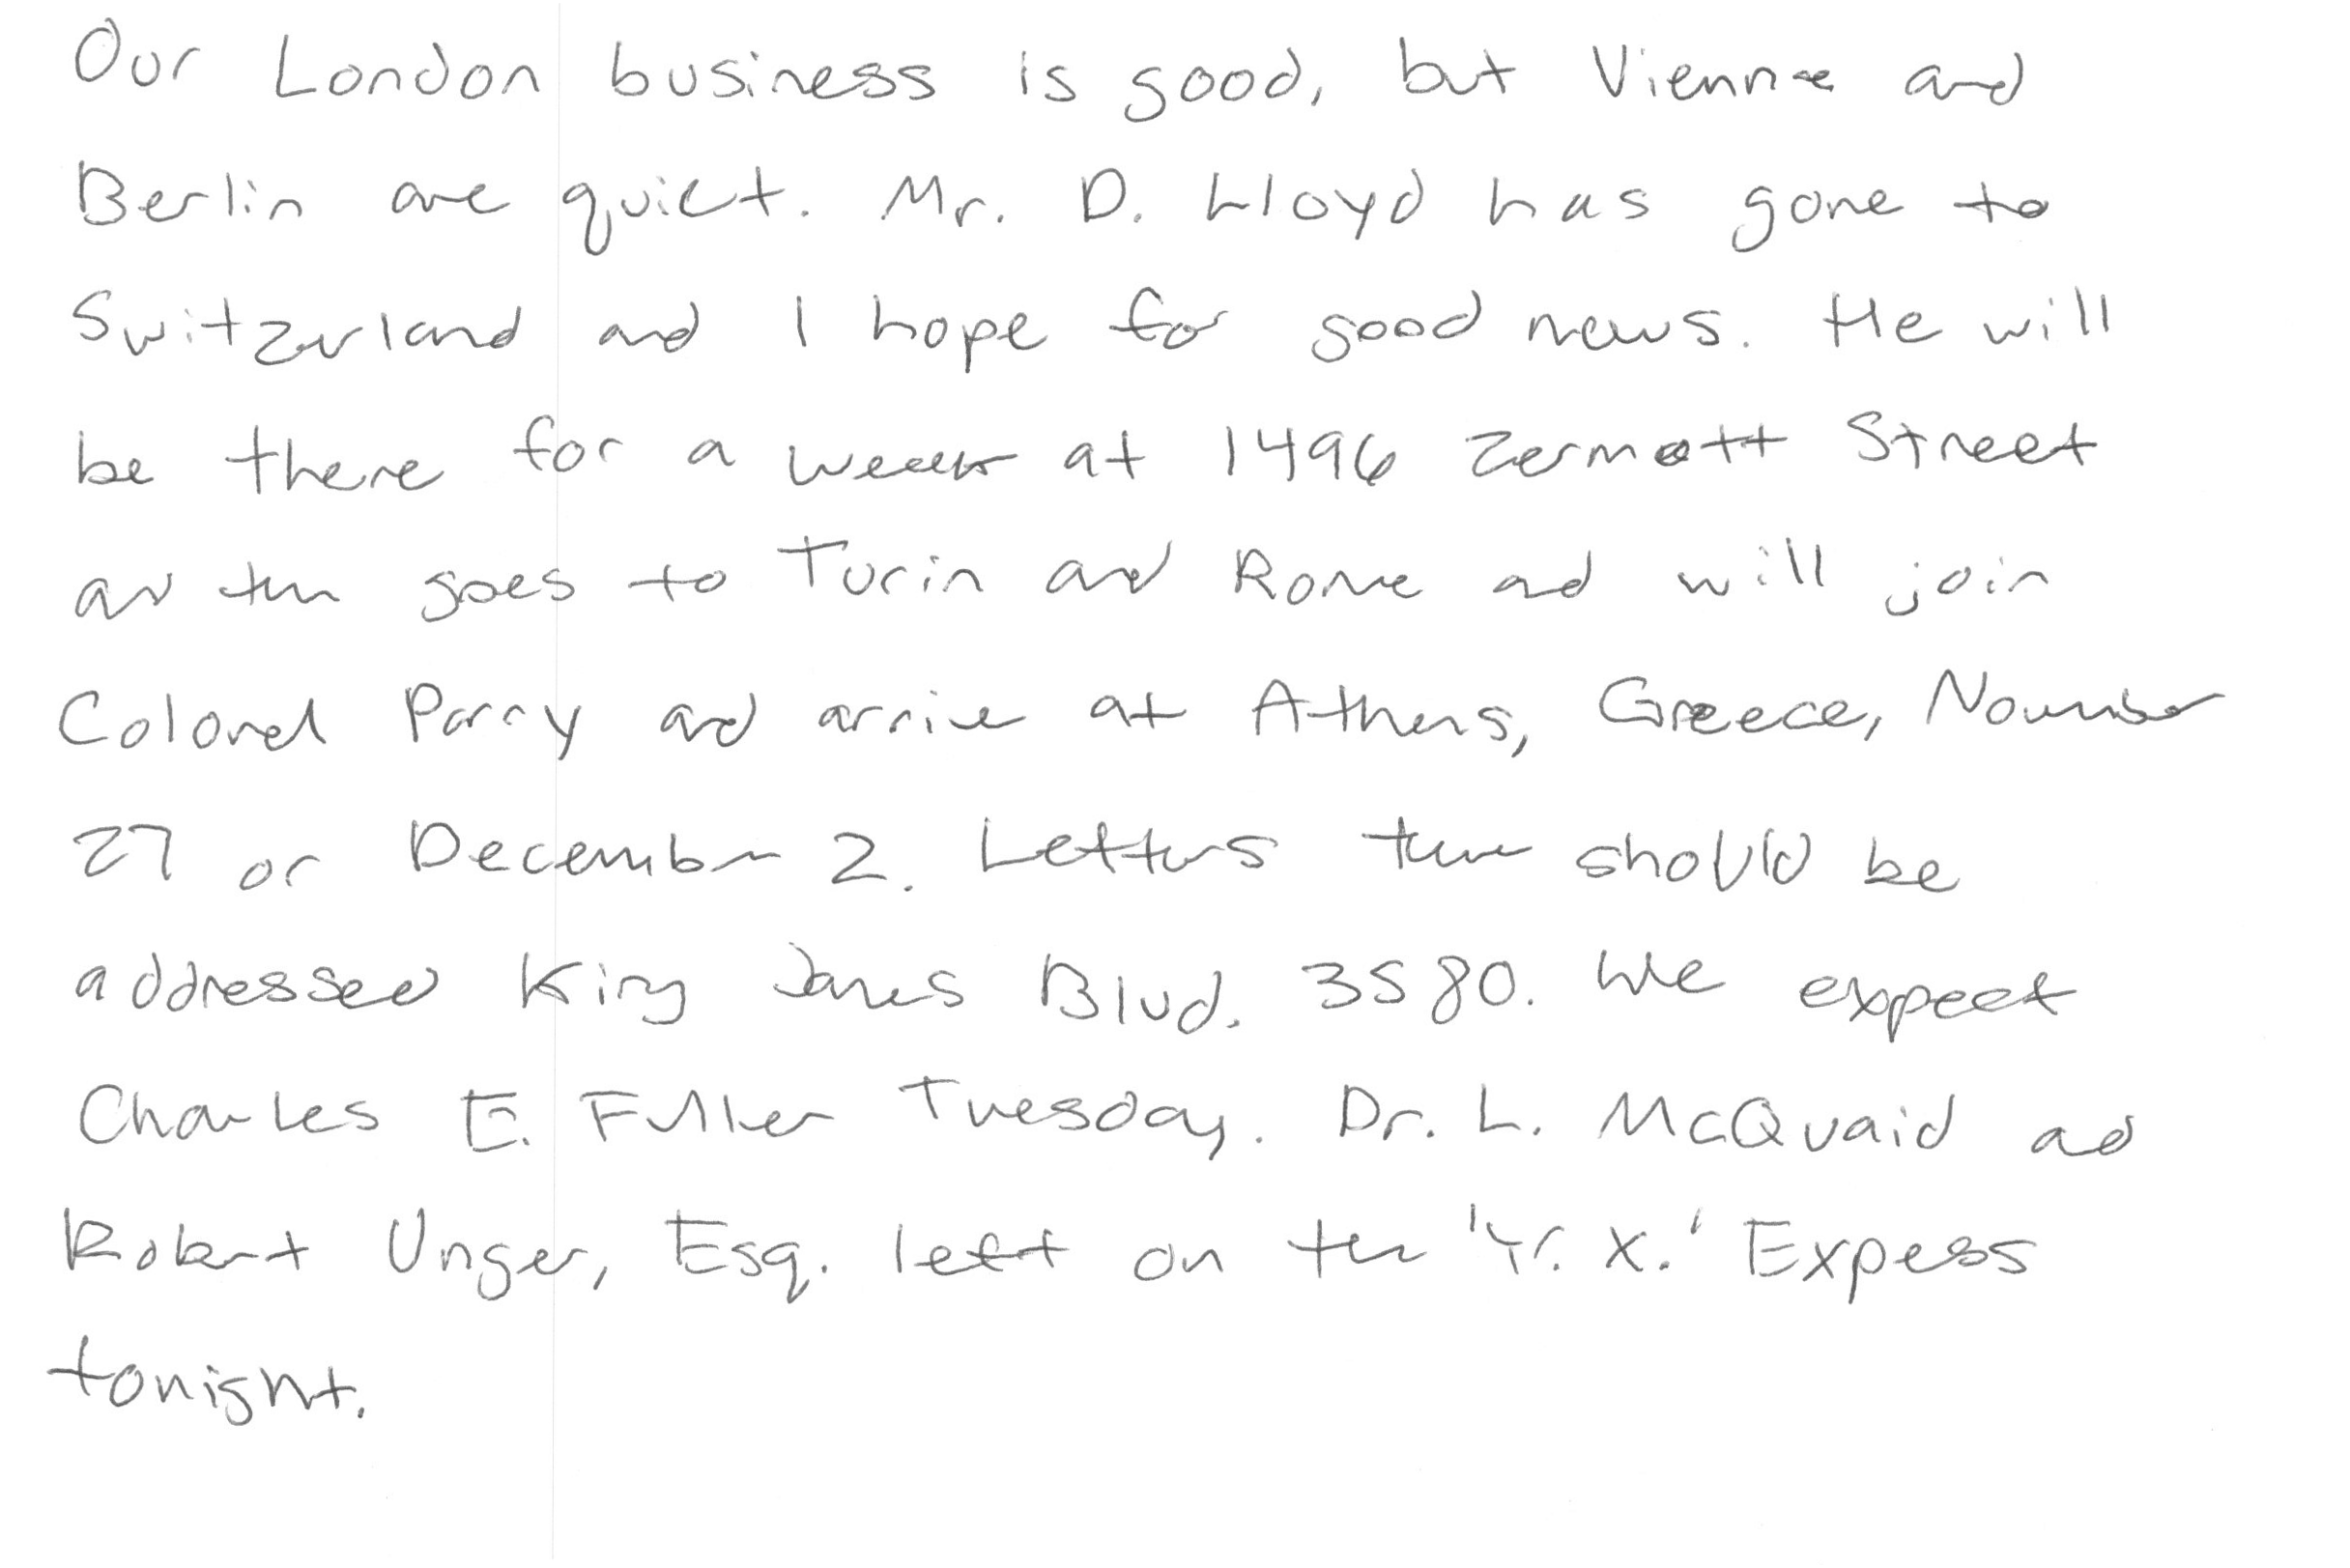 Our London business is good, but Vienna and
Berlin are quiet. Mr. D. Lloyd has gone to
Switzerland and I hope for good news. He will
be there for a week at 1496 Zermott Street
and then goes to Turin and Rome and will join
Colonel Parry and arrive at Athens, Greece, November
27 or December 2. Letters there should be
addressed King James Blvd. 3580. We expect
Charles E. Fuller Tuesday. Dr. L. McQuaid and
Robert Unger, Esq. left on the 'Y. X.' Expess
tonight.